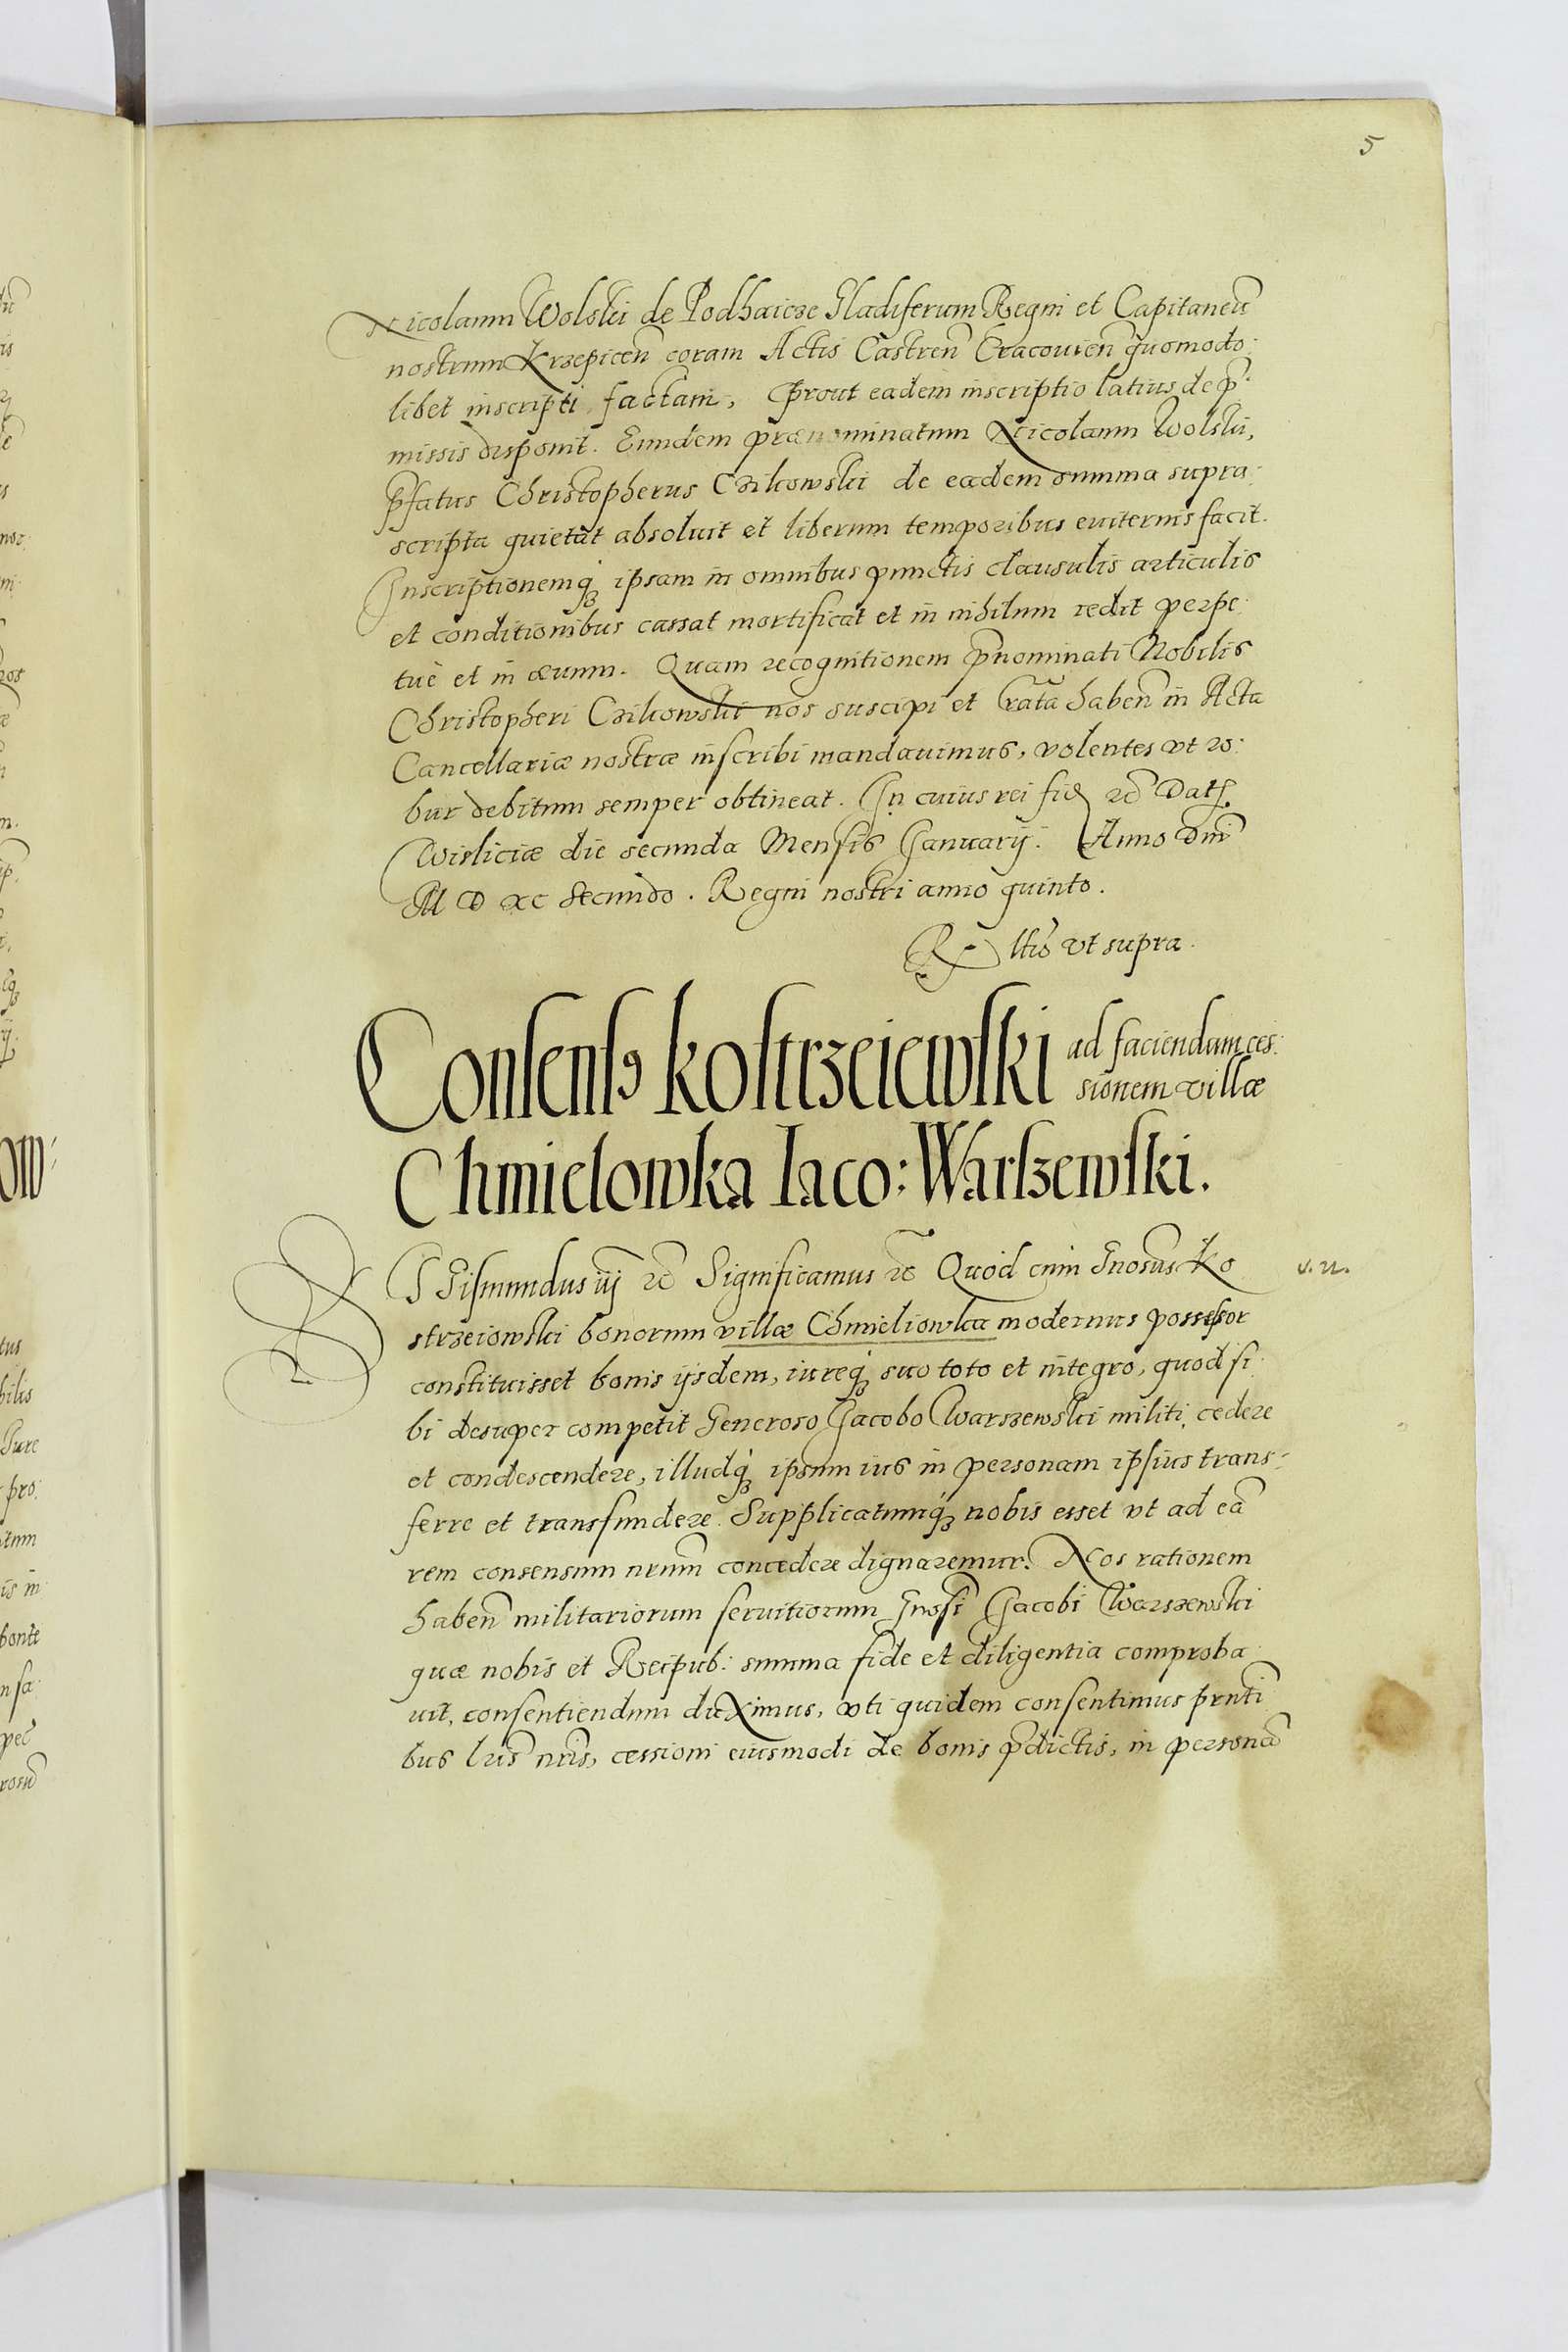 5
Nicolaum Wolski de Podhaicze Gladiferum Regni et Capitaneũ
nostrum Krzepiceñ coram Actis Castreñ Cracouieñ quomodo:
libet inscripti factam, prout eadem inscriptio latius de p̃:
missis disponit. Eundem prænominatum Nicolaum Wolski,
p̃fatus Christopherus Czikowski de eadem summa supra:
scripta quietat absoluit et liberum temporibus euiternis facit.
Inscriptionemq́ꝫ ipsam in omnibus punctis clausulis articulis
et conditionibus cassat mortificat et in nihilum redit perpe:
tuè et in æuum. Quam recognitionem p̃nominati Nobilis
Christopheri Czikowski nos suscipi et rata habeñ in Acta
Cancellariæ nostræ inscribi mandauimus, volentes vt ro:
bur debitum semper obtineat. In cuius rei fid ꝛc̃ Dat.
Wisliciæ die secunda Mensis Ianuarij. Anno Dñi
M D XC Secundo. Regni nostri anno quinto.
R ltio vt supra.
Consensꝰ Kostrzeiewski ad faciendam ces:
sionem villæ
Chmielowka Iaco: Warszewski.
SIGismundus iij ꝛc̃ Significamus ꝛc̃ Quod cum Gnosus Ko
v. n.
strzeiowski bonorum villæ Chmieliowka modernus possessor
constituisset bonis ijsdem, iureq́ꝫ suo toto et integro, quod si:
bi desuper competit Generoso Iacobo Warszewski militi, cedere
et condescendere, illudq́ꝫ ipsum ius in personam ipsius trans:
ferre et transfundere. Supplicatumq́ꝫ nobis esset vt ad eã
rem consensum nrum̃ concedere dignaremur. Nos rationem
habeñ militariorum seruitiorum Gnosi Iacobi Warszewski
quæ nobis et Reipub: summa fide et diligentia comproba
uit, consentiendum duximus, vti quidem consentimus pñti
bus lris̃ nris̃, cessioni eiusmodi de bonis p̃dictis, in personã